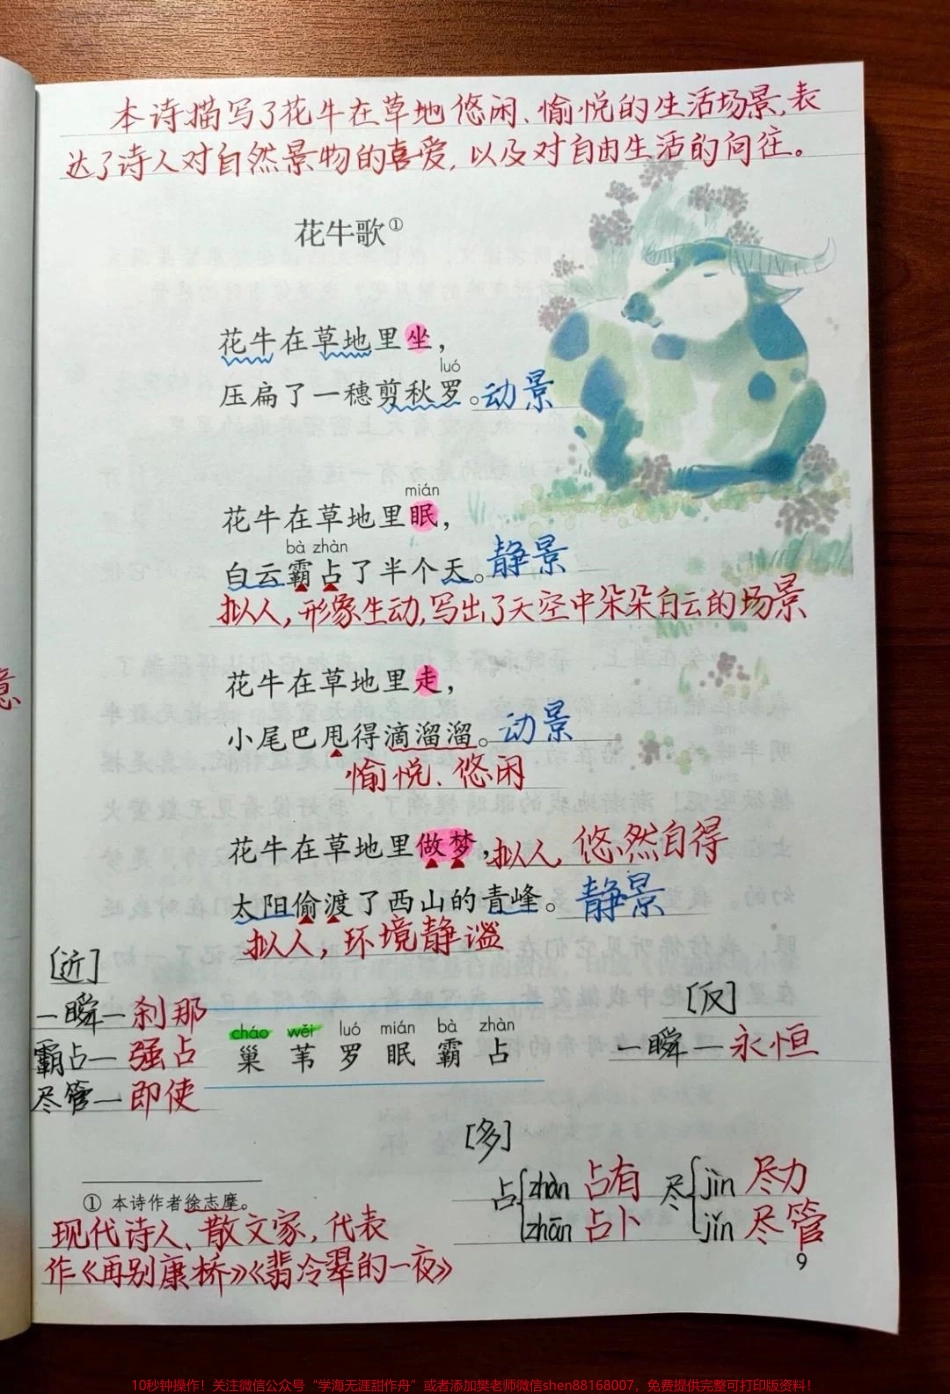 本诗描写了花牛在草地悠闲、愉悦的生活场景,表
达了诗人对自然景物的喜爱,以及对自由生活的向往。
花牛歌①
花牛在草地里坐，
luó
压扁了一穗剪秋罗。动景
mián
花牛在草地里眠，
bà zhàn
白云霸占了半个天。静景
拟人,形象生动,写出了天空中朵朵白云的场景
花牛在草地里走，
小尾巴甩得滴溜溜。动景
愉悦、悠闲
花牛在草地里做梦，拟人 悠然自得
太阳偷渡了西山的青峰。静景
拟人，环境静谧
[近]
一瞬—刹那
霸占—强占
尽管—即使
cháo wěi luó mián bà zhàn
巢 苇 罗 眠 霸 占
[反]
一瞬—永恒
[多]
占 zhàn 占有
zhān 占卜
尽 jìn 尽力
jǐn 尽管
① 本诗作者徐志摩。
现代诗人、散文家,代表
作《再别康桥》《翡冷翠的一夜》
9
10秒钟操作！关注微信公众号“学海无涯甜作舟”或者添加樊老师微信shen88168007，免费提供完整可打印版资料！